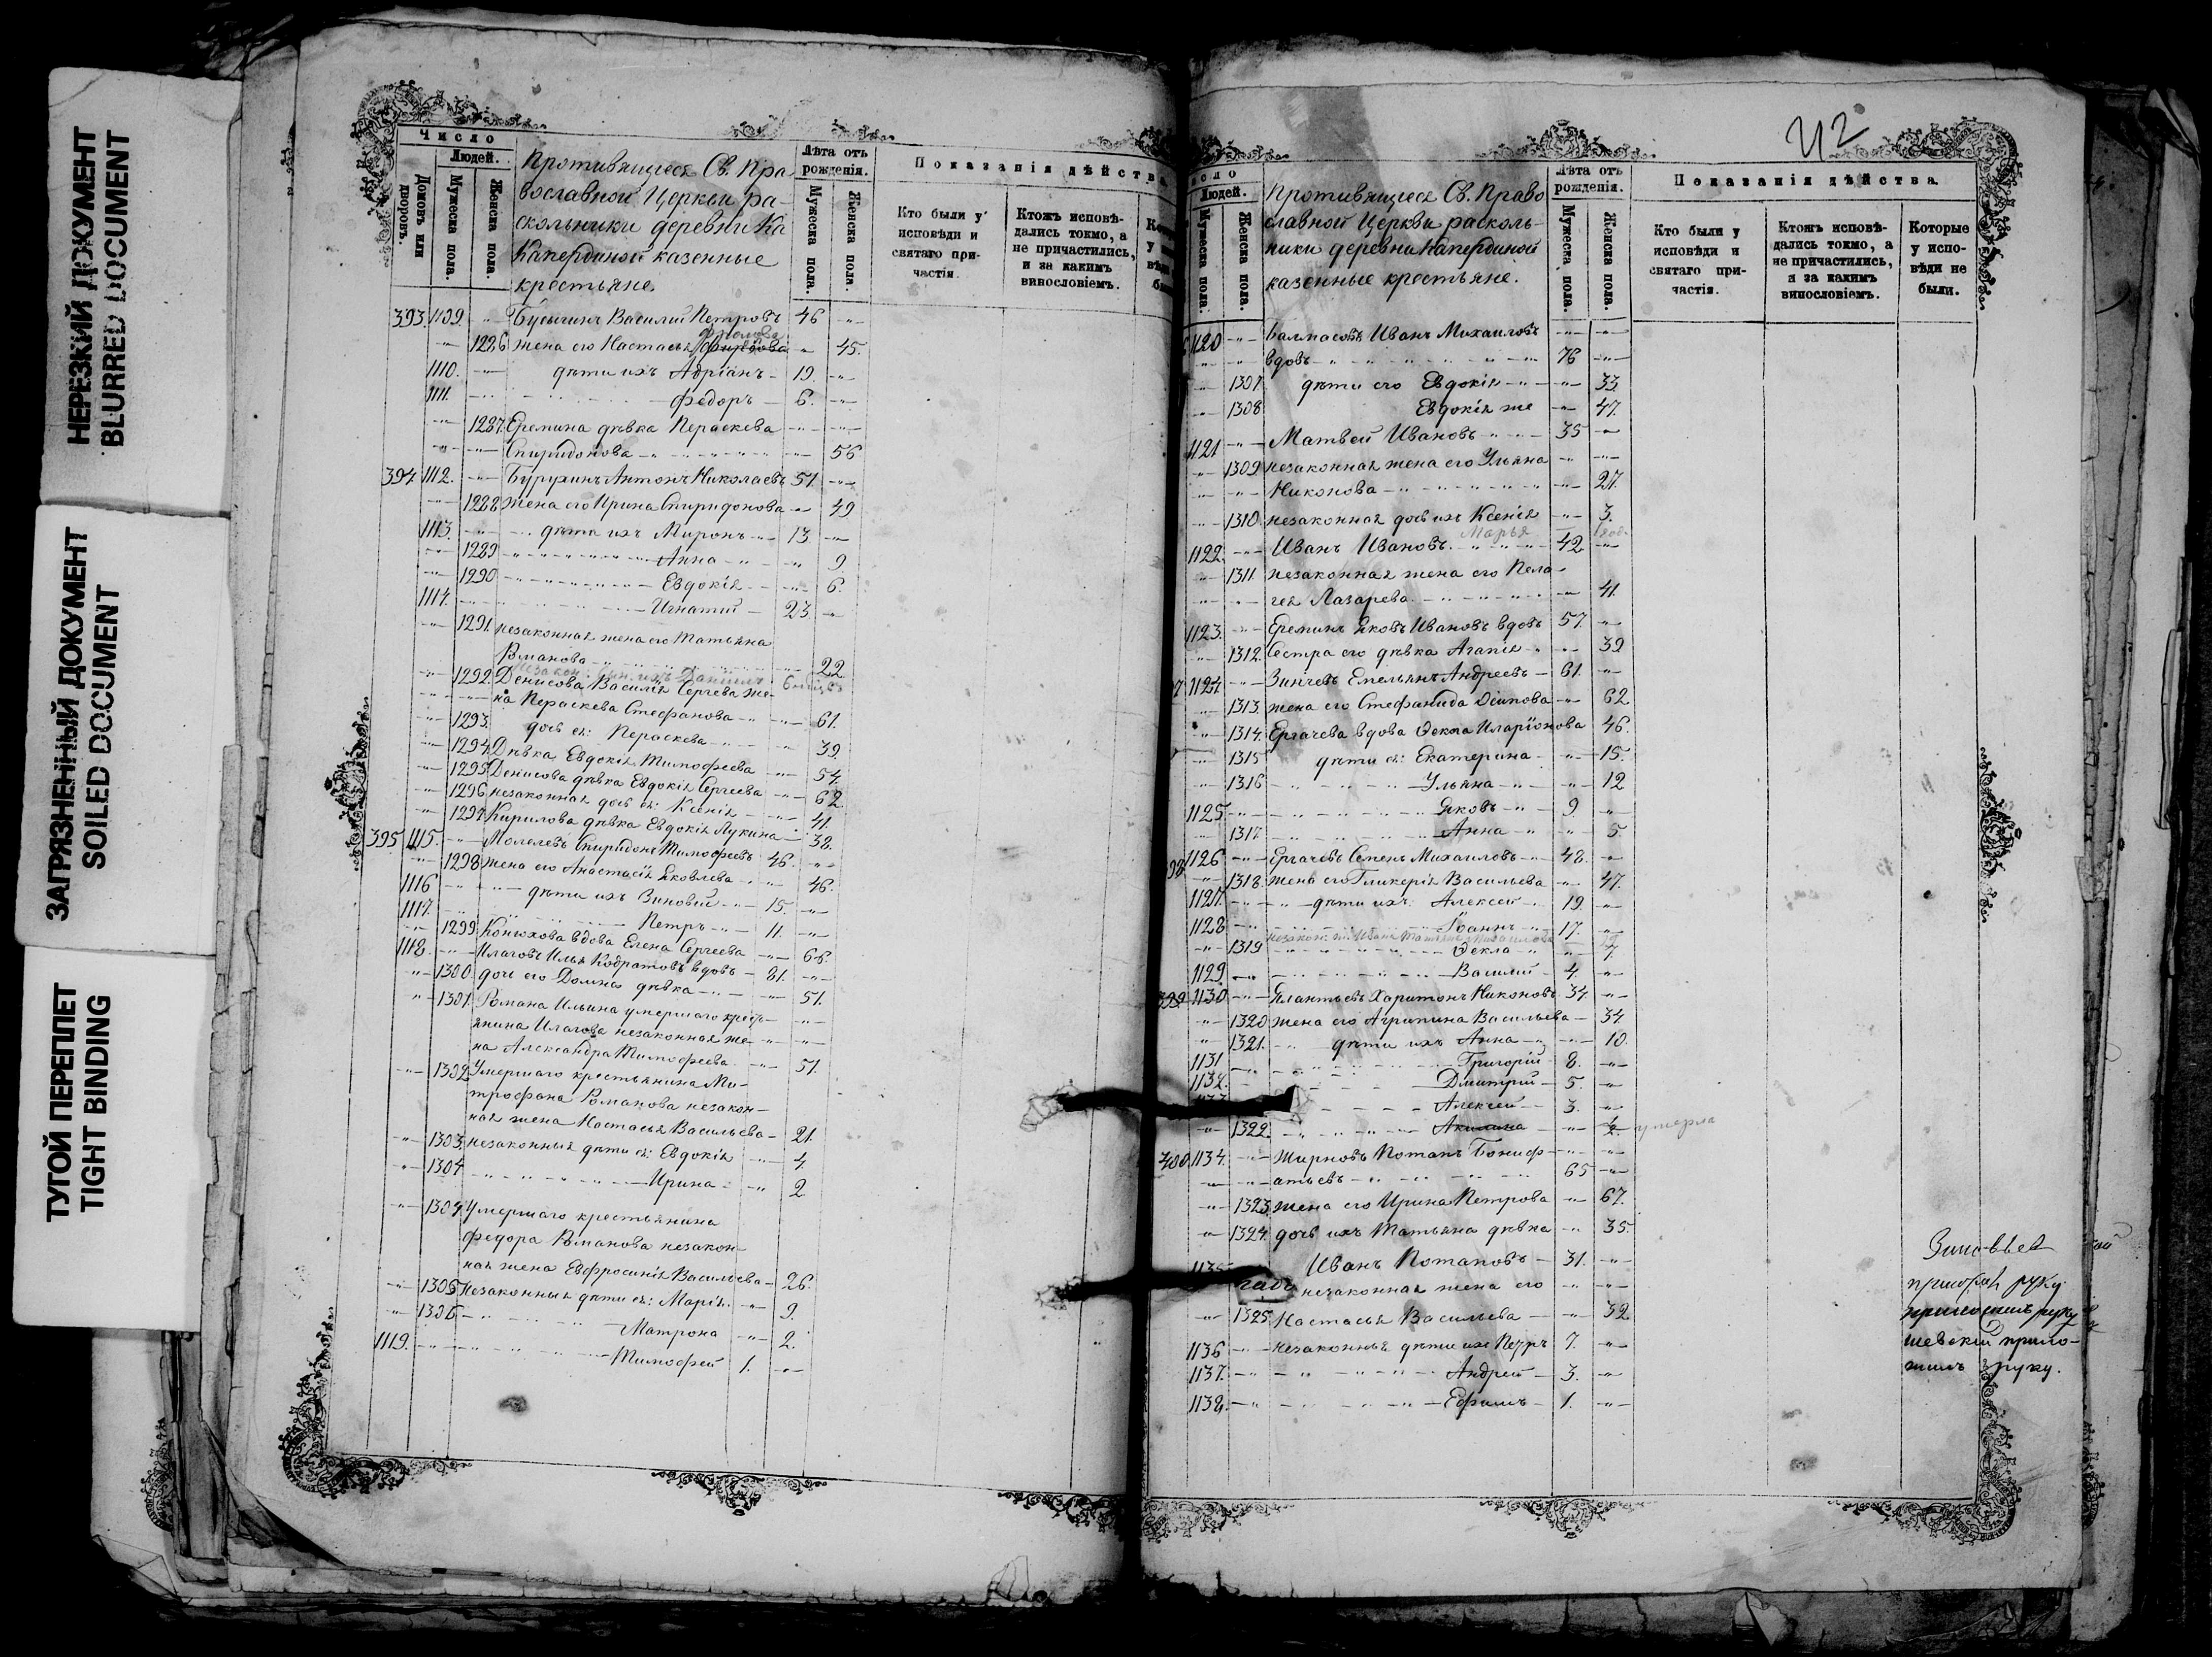 НЕРЕЗКИЙ ДОКУМЕНТ
BLURRED DOCUMENT
ЗАГРЯЗНЕННЫЙ ДОКУМЕНТ
SOILED DOCUMENT
ТУГОЙ ПЕРЕПЛЕТ
TIGHT BINDING
Число
Людей.
Домовъ или дворовъ.
Мужеска пола.
Женска пола.
Противящиеся Св. Пра-
вославной Церкви ра-
скольники деревни Ка
Капердиной казенные
крестьяне.
Лѣта отъ рожденія.
Мужеска пола.
Женска пола.
Показанія дѣйства
Кто были у исповѣди и святаго при-частія.
Ктожъ исповѣ-дались токмо, а не причастились, и за какимъ винословіемъ.
393 1109 Бусыгинъ Василий Петровъ 46
1286 жена его Настасья 45.
1110. дѣти ихъ Адріанъ 19.
1111. Федоръ 6.
1287. Еремина дѣвка Пераскева
Спиридонова 56
394 1112. Бурухинъ Антонъ Николаевъ 51.
1288 жена его Ирина Спиридонова 49
1113. дѣти ихъ Миронъ 13
1289 Анна 9
1290 Евдокія 6.
1114. Игнатий 23
1291. незаконная жена его Татьяна
Романова 22
1292. Денисова Василія Сергева же-
на Пераскева Стефанова 61.
1293. дочь ея: Пераскева 39.
1294. Дѣвка Евдокія Тимофеева 54.
1295 Денисова дѣвка Евдокія Сергеева 62
1296 незаконная дочь ея: Ксенія 41.
1297 Кирилова дѣвка Евдокія Лукина 38.
395. 1115. Спиридонъ Тимофеевъ 46.
1298 жена его Анастасія Яковлева 46.
1116 дѣти ихъ Зиновий 15.
1117. Петръ 11.
1299 Конюхова вдова Елена Сергеева 66.
1118. Илья вдовъ 81.
1300. дочь его Домна дѣвка 51.
1301. Романа Ильина умершаго кресть-
янина незаконная же-
на Александра Тимофеева 51.
1302 Умершаго крестьянина Ми-
трофана Романова незакон-
ная жена Настасья Васильева 21.
1303. незаконныя дѣти ея: Евдокія 4.
1304 Ирина 2
1304. Умершаго крестьянина
Федора Романова незакон-
ная жена Евфросинія Васильева 26.
1305 Незаконныя дѣти ея: Марія 9.
1306 Матрона 2.
1119. Тимофей 1.
42
Людей.
Мужеска пола.
Женска пола.
Противящиеся Св. Право
славной Церкви расколь-
ники деревни Капердиной
казенные крестьяне.
Лѣта отъ рожденія.
Мужеска пола.
Женска пола.
Показанія дѣйства.
Кто были у исповѣди и святаго при-частія.
Ктожъ исповѣ-дались токмо, а не причастились, и за какимъ винословіемъ.
Которые у испо-вѣди не были.
1120 Балмасовъ Иванъ Михаиловъ
вдовъ 76
1307 дѣти его Евдокія 33.
1308 Евдокія же 47.
1121 Матвей Ивановъ 35
1309 незаконная жена его Ульяна
Никонова 27.
1310. незаконная дочь ихъ Ксенія 3.
Марья
1122. Иванъ Ивановъ 42
1311. незаконная жена его Пела-
гея Лазарева 41.
1123. Ереминъ Яковъ Ивановъ вдовъ 57.
1312. Сестра его дѣвка Агапія 39
1124. Зинчевъ Емельянъ Андреевъ 61.
1313. жена его Стефанида Осипова 62
1314. Ергачева вдова Ѳекла Иларіонова 46.
1315 дѣти ея: Екатерина 15.
1316 Ульяна 12
1125. Яковъ 9
1317. Анна 5.
1126 Ергачевъ Семенъ Михаиловъ 48.
1318. жена его Гликерія Васильева 47.
1127. дѣти ихъ: Алексей 19.
1128 Іоаннъ 17.
1319 Ѳекла 7.
1129. Василий 4.
399 1130 Харитонъ Никоновъ 34.
1320 жена его Агрипина Васильева 34
1321. дѣти ихъ Анна 10.
1131 Григорій 8.
1132. Дмитрій 5.
Алексей 3.
1322. Акилина умерла
400 1134. Жирновъ Потапъ Бониф-
атьевъ 65
1323. жена его Ирина Петрова 67.
1324. дочь ихъ Татьяна дѣвка 35.
1135 Иванъ Потаповъ 31.
незаконная жена его
1325 Настасья Васильева 32
1136 незаконныя дѣти ихъ Петръ 7.
1137. Андрей 3.
1138. Ефимъ 1.
руку
шевский прило-
жилъ руку.